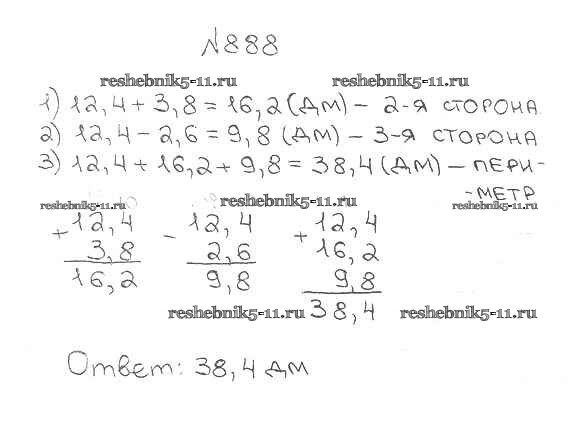 №888
reshebnik5-11.ru reshebnik5-11.ru
1) 12,4 + 3,8 = 16,2 (дм) – 2-я сторона
2) 12,4 – 2,6 = 9,8 (дм) – 3-я сторона
3) 12,4 + 16,2 + 9,8 = 38,4 (дм) – пери-
-метр
reshebnik5-11.ru reshebnik5-11.ru reshebnik5-11.ru
+ 12,4 – 12,4 + 12,4
3,8 2,6 16,2
16,2 9,8 9,8
reshebnik5-11.ru 38,4 reshebnik5-11.ru
Ответ: 38,4 дм